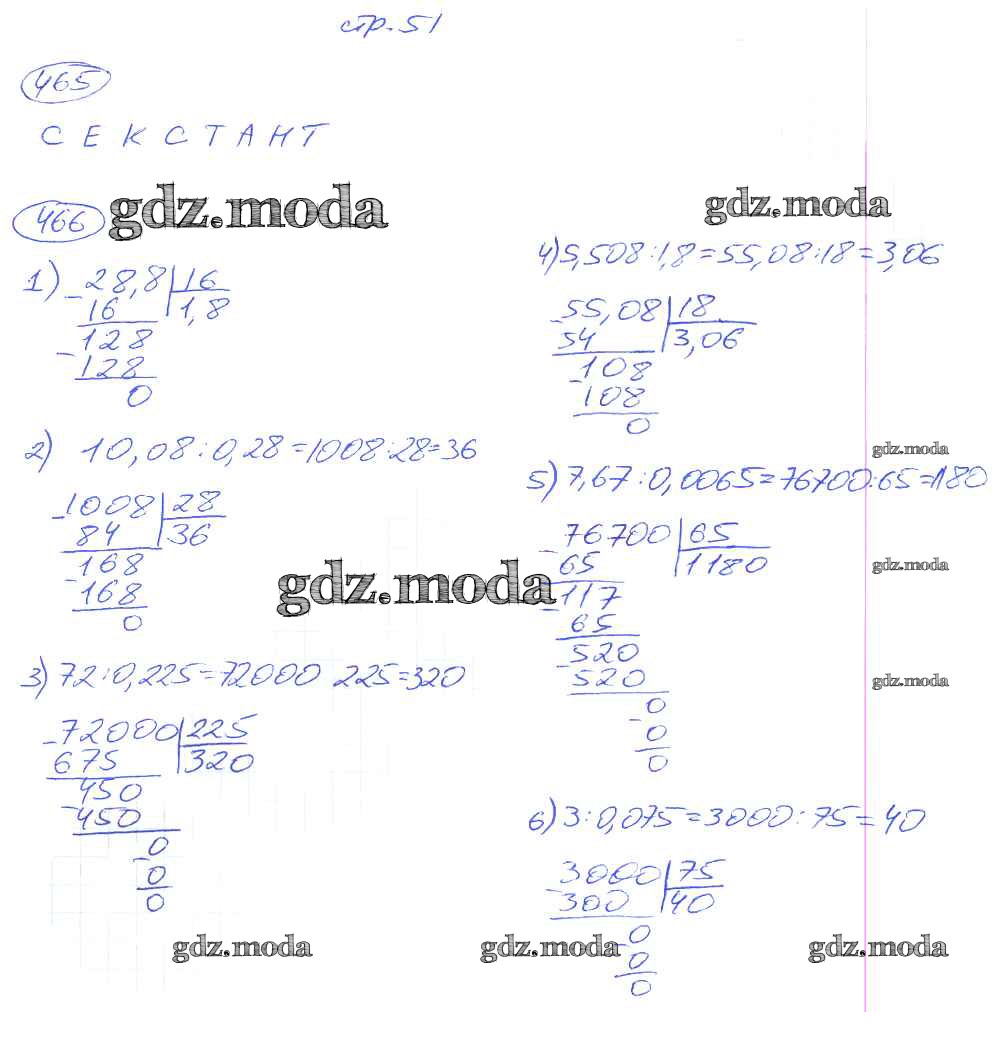 стр. 51
465
СЕКСТАНТ
466
gdz.moda
gdz.moda
1) 28,8 | 16
- 16 1,8
128
- 128
0
2) 10,08:0,28=1008:28=36
- 1008 | 28
84 36
- 168
168
0
gdz.moda
3) 72:0,225=72000 225=320
- 72000 | 225
675 320
- 450
450
0
- 0
0
4) 5,508:1,8=55,08:18=3,06
- 55,08 | 18
54 3,06
- 108
108
0
gdz.moda
5) 7,67:0,0065=76700:65=1180
- 76700 | 65
65 1180
gdz.moda
- 117
65
- 520
520
gdz.moda
0
- 0
0
6) 3:0,075=3000:75=40
- 3000 | 75
300 40
0
- 0
0
gdz.moda
gdz.moda
gdz.moda